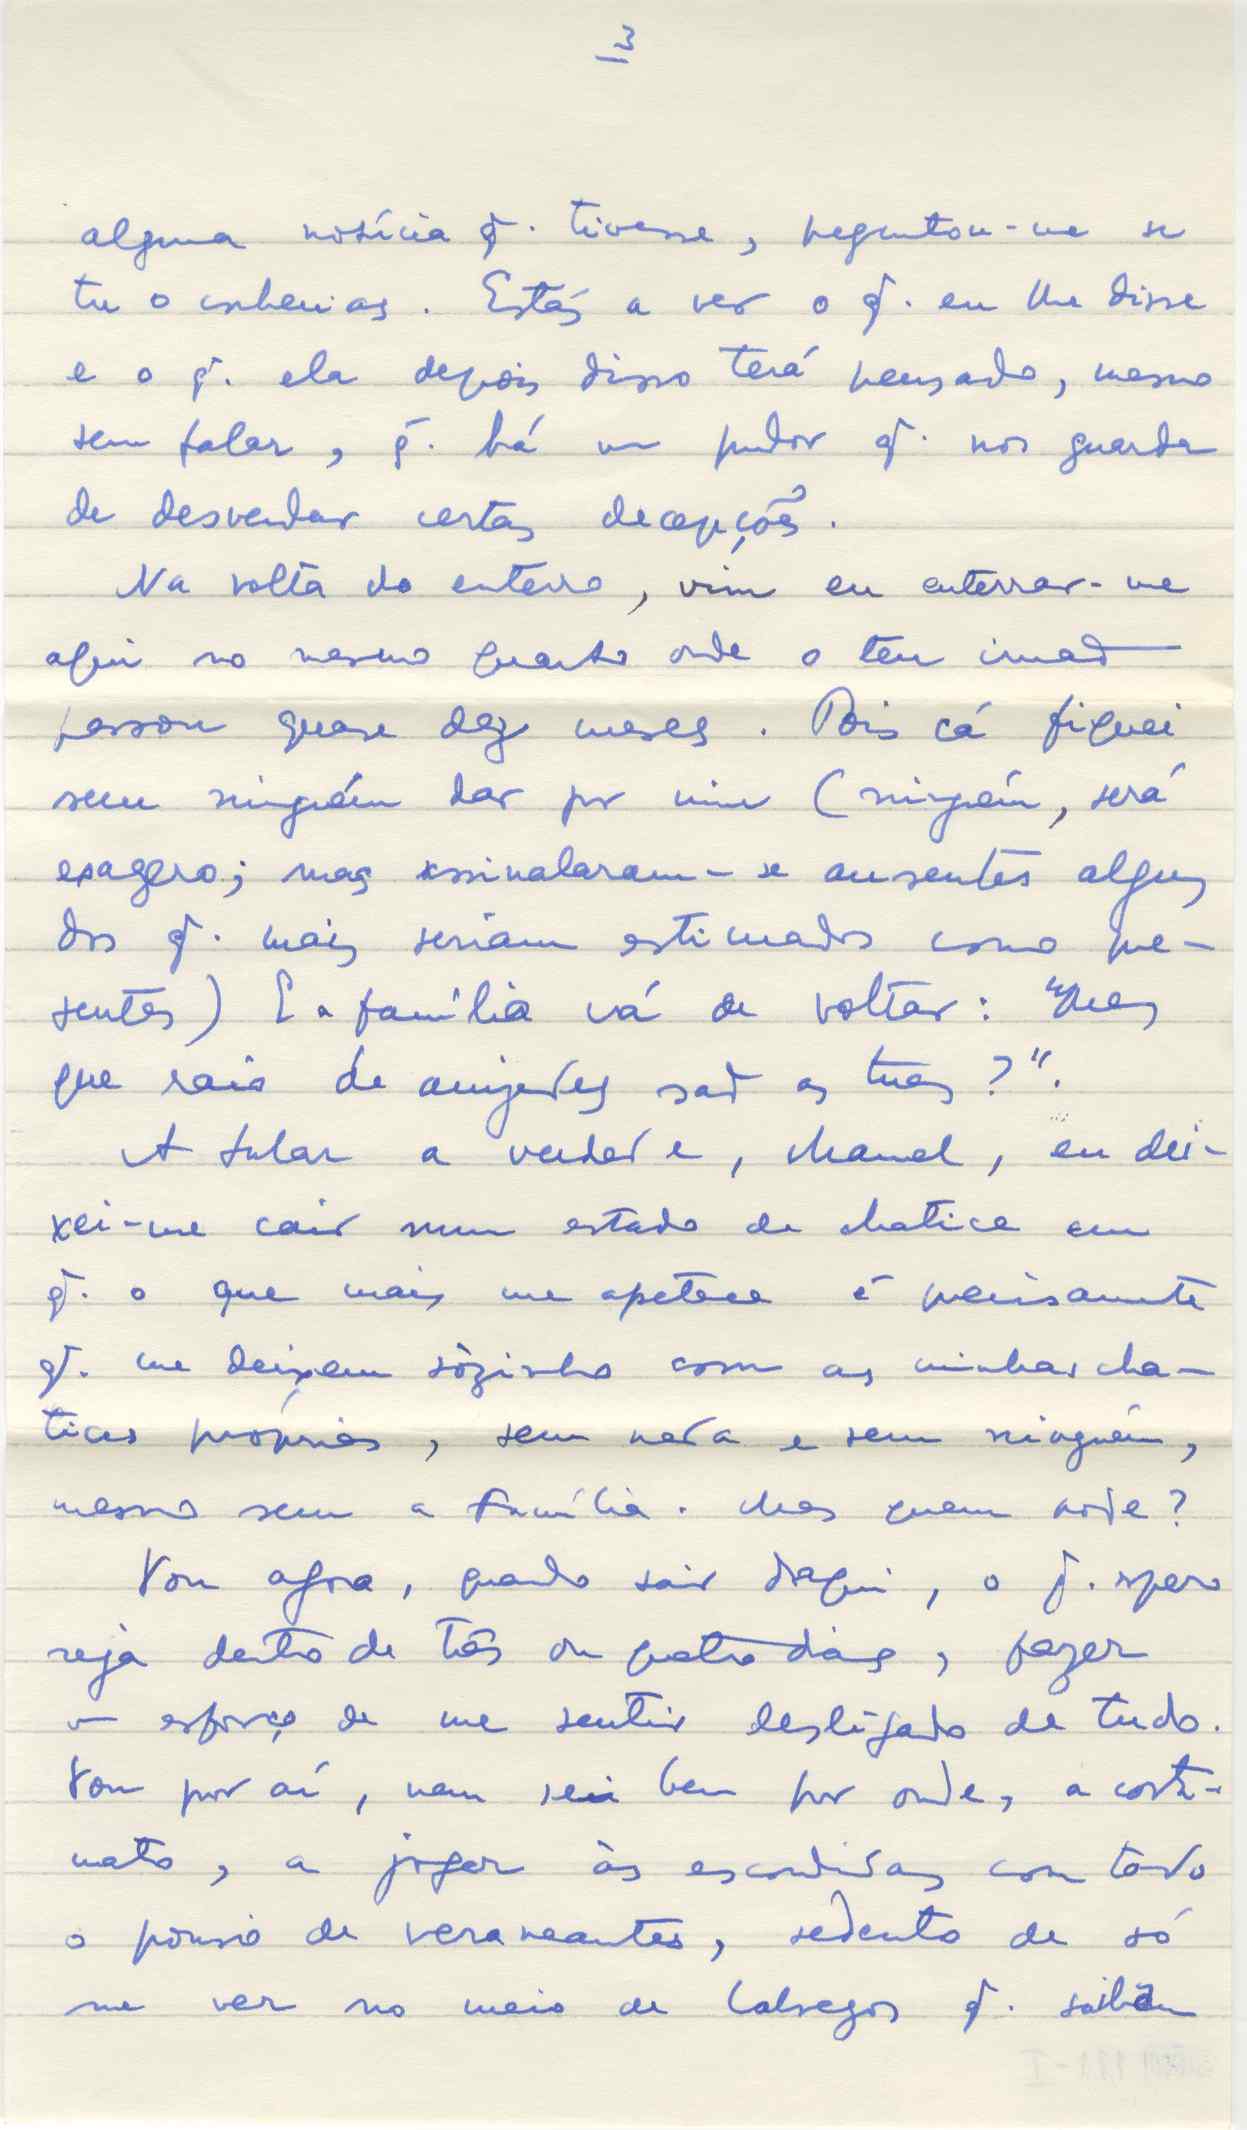 3
alguma notícia q. tivesse, perguntou-me se
tu o conhecias. Estás a ver o q. eu lhe disse
e o q. ela depois disso terá pensado, mesmo
sem falar, q. há um pudor q. nos guarda
de desvendar certas decepções.
Na volta do enterro, vim eu enterrar-me
aqui no mesmo quarto onde o teu irmão
passou quase dez meses. Pois cá fiquei
sem ninguém dar por mim (ninguém, será
exagero; mas assinalaram-se ausentes alguns
dos q. mais seriam estimados como pre-
sentes) E a família vá de voltar: "Mas
que raio de amizades são as tuas?".
A falar a verdade, Manel, eu dei-
xei-me cair num estado de chatice em
q. o que mais me apetece é precisamente
q. me deixem sòzinho com as minhas cha-
tices próprias, sem nada e sem ninguém,
mesmo sem a família. Mas quem pode?
Vou agora, quando sair daqui, o q. espero
seja dentro de três ou quatro dias, fazer
um esforço de me sentir desligado de tudo.
Vou por aí, nem sei bem por onde, a corta-
mato, a jogar às escondidas com todo
o pouso de veraneantes, sedento de só
me ver no meio de labregos q. saibam